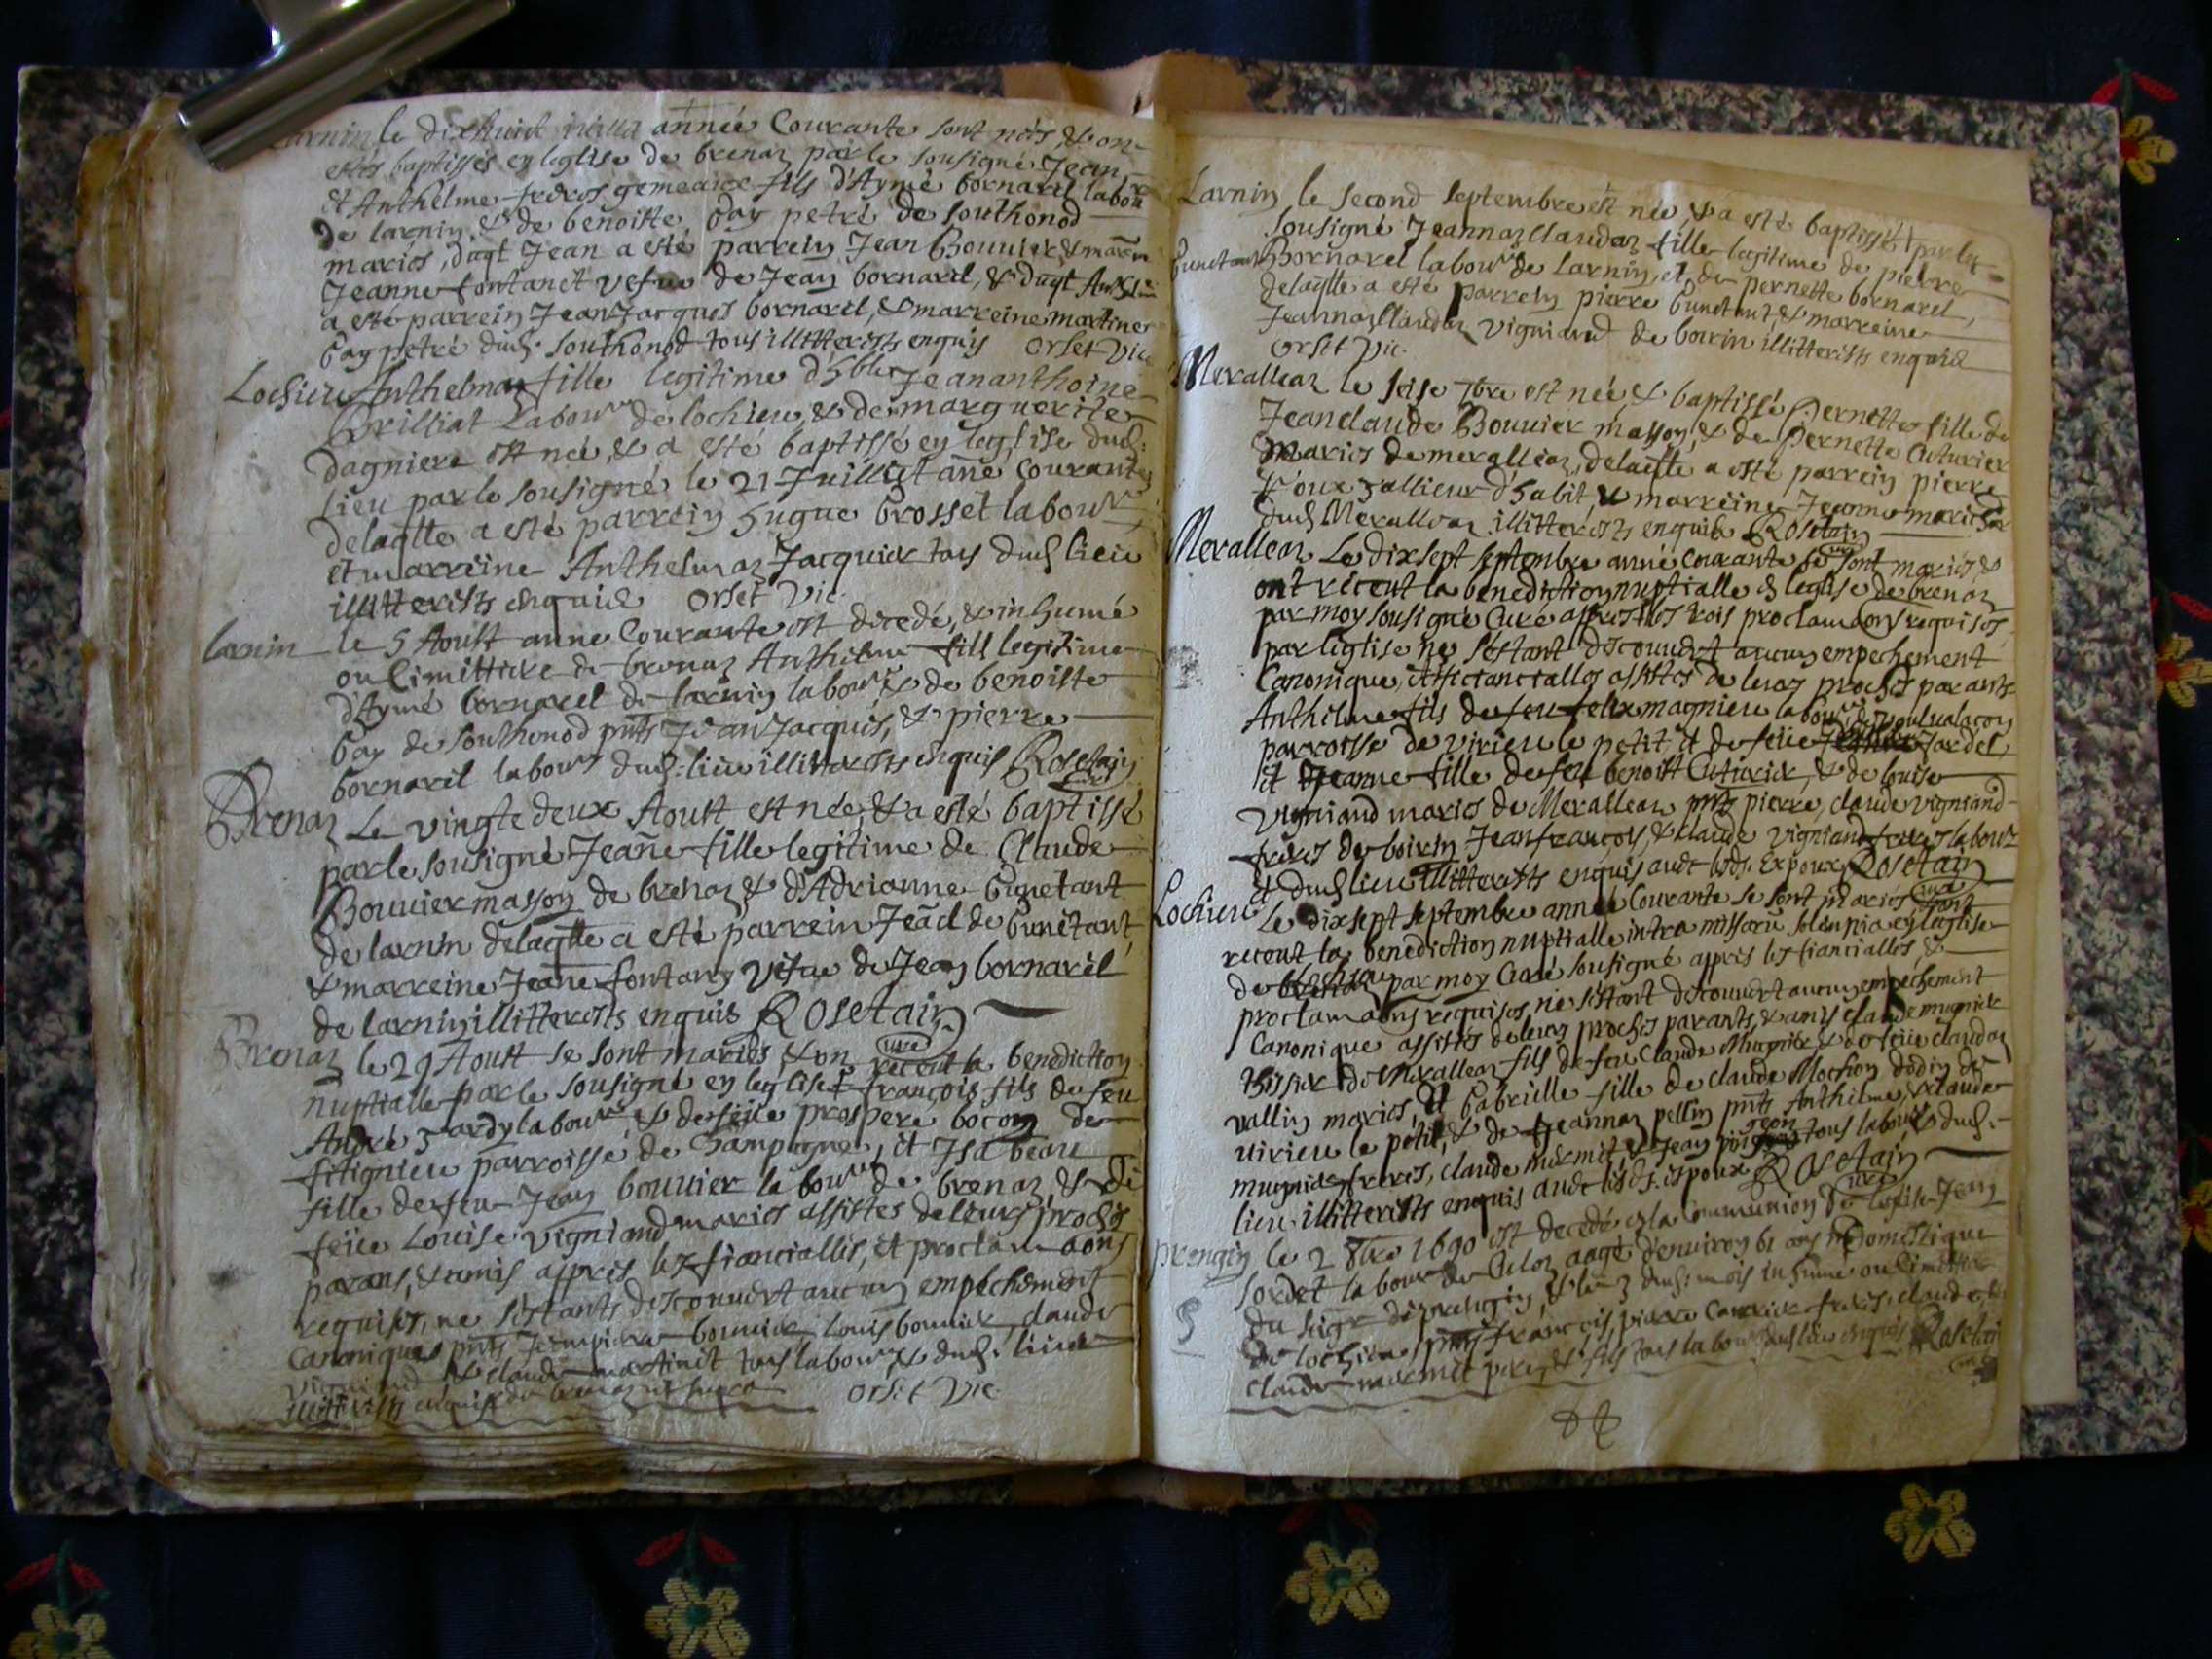 le dixhuict année Courante sont nés, & on
estés baptissés en leglise de brenaz par le sousigné Jean
et Anthelme freres gemeaux fils d'Aymé bornarel labour
de larnin, & de benoiste Gay petré de southonod
mariés, duqt Jean a esté parrein Jean Bouuier & marr
Jeanne fontanet vefue de Jean bornarel, & duqt Anthelm
a esté parrein Jean Jacques bornarel, & marreine martine
Gay petré dud. southonod tous illitterests enquis Orset Vic
Lochieu Anthelmaz fille legitime d'hble Jeananthoine
Brilliat Labour de lochieu, & de marguerite
dagniere est née, & a esté baptissé en leglise dud:
lieu par le sousigné le 21 Juilliet ane Courante
delaqlle a esté parrein hugue brosset labour
et marreine Anthelmaz Jacquier tous dud lieu
illitterests enquis Orset Vic.
larnin le 5 Aoust anne Courante est decedé, & inhumé
ou Cimittiere de brenaz Anthelme fill legitime
d'Aymé bornarel de larnin labour & de benoiste
Gay de southonod pnts Jean Jacques, & pierre
bornarel labours dud: lieu illitterests enquis Rosetain
curé
Brenaz Le vingte deux Aoust est née, & a esté baptissé
par le sousigné Jeane fille legitime de Claude
Bouuier masson de brenaz & d'Adrianne Gunetant
de larnin delaqlle a esté parrein Jeacl de Gunetant
& marreine Jeane fontany vefue de Jean bornarel
de larnin illitterests enquis Rosetain
curé
Brenaz le 29 Aoust se sont mariés, & on receut la benediction
nuptialle par le sousigné en leglise françois fils de feu
André Jardy labour & de feüe prospere bocon de
fitignieu parroisse de Champagne, et Jsabeau
fille de feu Jean bouuier labour de brenaz, & de
feüe Louise vigniand mariés assistes de leurs prochs
parans, & amis appres les fiancialles, et proclam aons
requises, ne s'estants descouuert aucun empechement
Canoniques pnts Jeanpierre bouuier, Louis bouuier, claude
vigniand & claude martinet tous labours, & dud. lieu
illitterests enquis de brenaz Orset Vic

Larnin le second septembre est née & a esté baptissé par le
sousigné Jeannaz Claudaz fille legitime de pierre
Gunetant Bornarel labour de larnin, et de pernette bornarel,
delaqlle a esté parrein pierre Gunetant, & marreine
Jeannaz Claudaz vigniand de boirin illitterests enquis
Orset Vic.
Meralleaz le seise 7bre est née & baptissé Pernette fille de
Jeanclaude Bouuier masson, & de Pernette Cuturier
mariés de meralleaz, delaqlle a esté parrein pierre
d'habit, & marreine Jeanne
dud Meralleaz illitterests enquis Rosetain
curé
Meralleaz Le dixsept septembre année Courante se sont mariés &
ont receut la benediction nuptialle en leglise de brenaz
par moy sousigné Curé appres les trois proclamaons requises
par leglise ne s'estant descouuert aucun empechement
Canonique, et fiancialles assistes de leurs prochs parants
Anthelme fils de feu felix magnieu labour de
parroisse de virieu le petit, et de feüe Jardel
et Jeanne fille de feu benoist Cuturier, & de louise
vigniand mariés de Meralleaz pnts pierre, claude vigniand
freres de boirin Jeanfrançois, & claude vigniand freres labour
& dud lieu illitterests enquis auec lesds. Expoux Rosetain
curé
Lochieu Le dixsept septembre année Courante se sont mariés & ont
receut la benediction nuptialle intra missaru solempnia en leglise
de lochieu par moy Curé sousigné appres les fiancialles, &
proclamaons requises ne s'estant descouuert aucun empechement
Canonique assistes de leurs prochs parants, & amis claude mugnier
tissier de Meralleaz fils de feu Claude Mugnier & de feüe claudaz
vallin mariés, et Gabrielle fille de claude Mochon dodin de
virieu le petit, & de Jeannaz pellin pnts Anthelme, & claude
mugnier freres, claude mermet & Jean tous labours & dud.
lieu illitterests enquis auec lesds. espoux Rosetain
curé
prengin le 2 8bre 1690 est decedé en la Communion de leglise Jean
sordet labour de Culoz aagé d'enuiron 61 ans domestique
du sigr de prengin, & le 3 dud: mois inhumé ou Cimettiere
de lochieu pnts françois, pierre Carrier freres, claude &
claude mermet pere, & fils tous labours dud lieu enquis Rosetain
curé